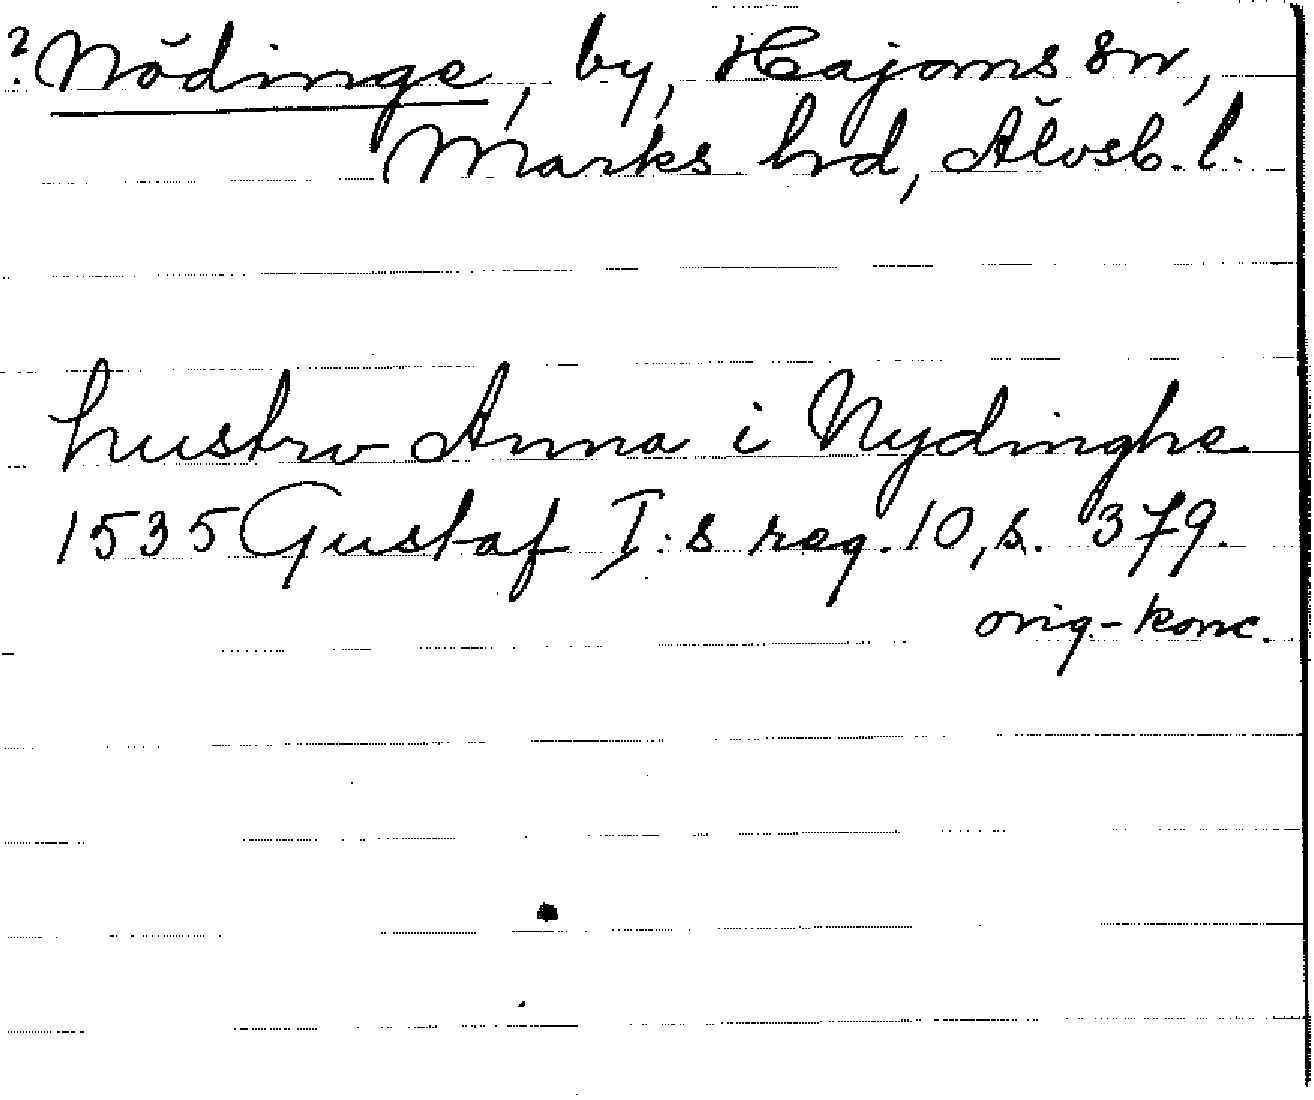 ? Nödinge, by, Hajoms sn,
Marks hrd, Älvsb. l.
hustrv Anna i Nydinghe
1535 Gustaf I:s reg. 10, s. 379.
orig-konc.